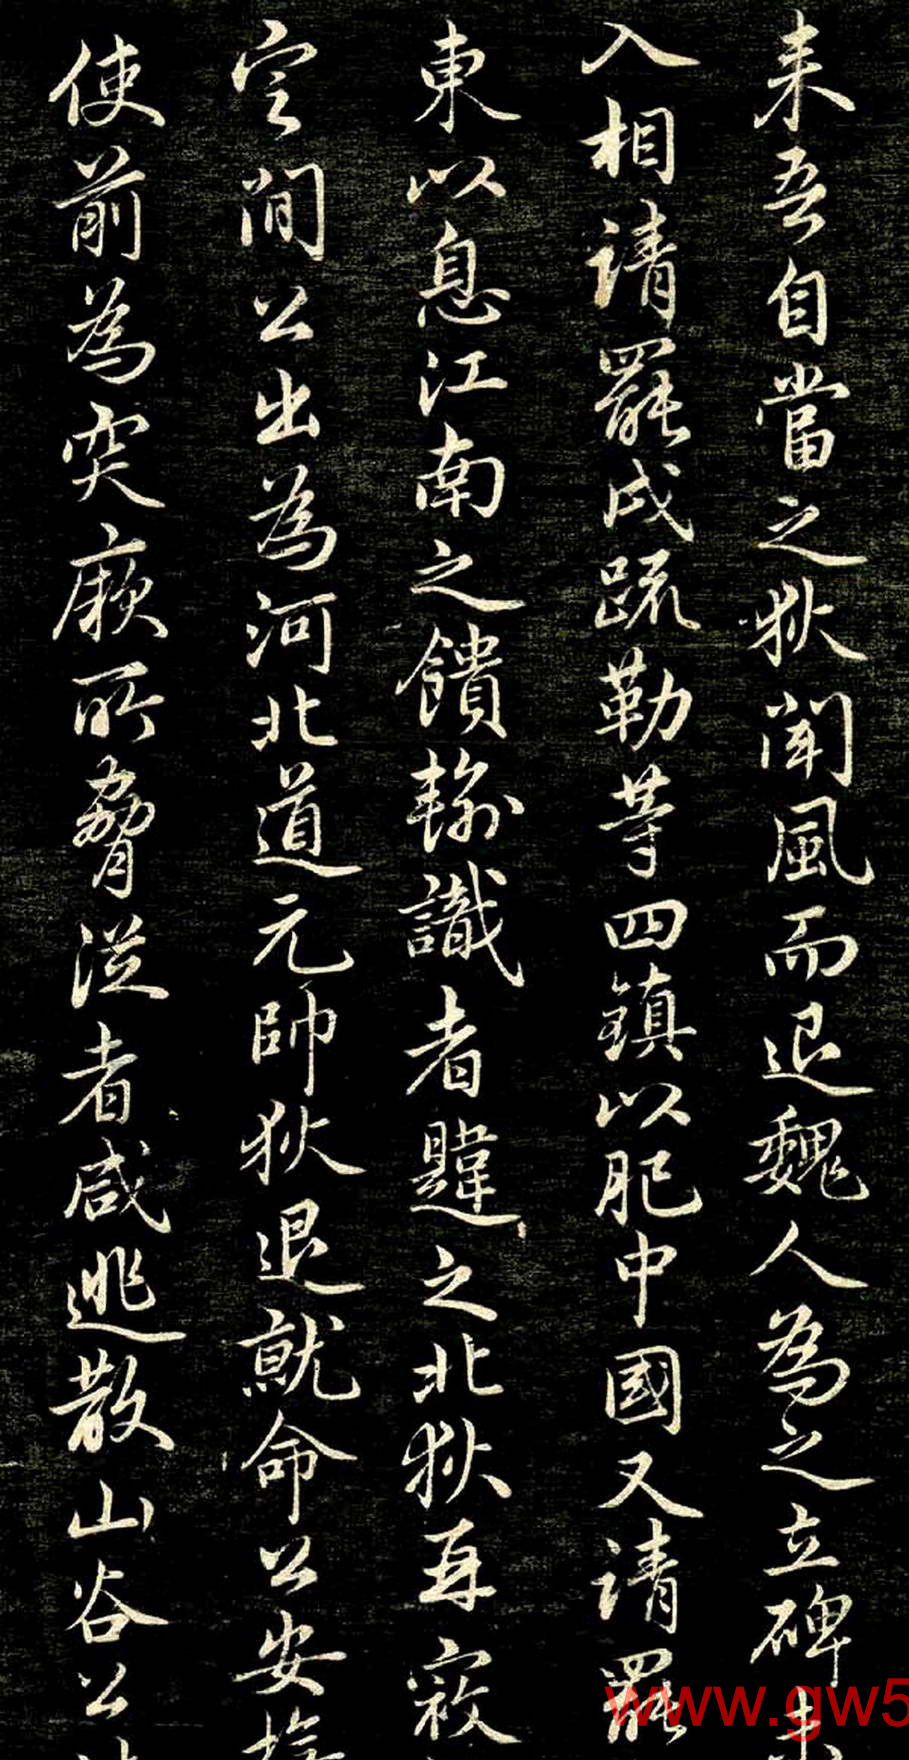 来吾自當之狄聞風而退魏人為之立碑未
入相請罷戍疏勒等四鎮以肥中國又請罷
東以息江南之饋輸識者韙之北狄再寇
定間公出為河北道元帥狄退就命公安撫
使前為突厥所脅從者咸逃散山谷公
www.gw5